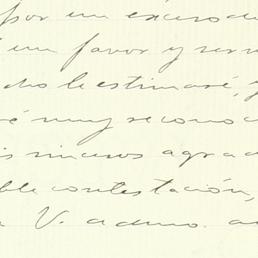 por un exceso de
un favor y serv
le estimaré, y
muy recono
sinceros agrad
ble contestación,
V. admo.